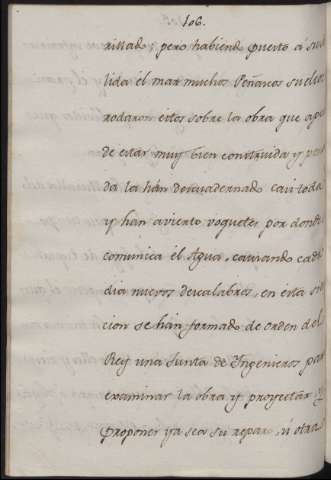 106.
rillado; pero habiendo puesto á su sa
lida él mar muchos Peñascos sueltos
rodaron estos sobre la obra que ape
de estar muy bien construida y
da la hán desquadernado casi toda
y han avierto voquetes por donde
comunica él Agua, causando cada
dia nuevos descalabros, en esta
cion se hán formado de orden del
Rey una Junta de Ingenieros para
examinar la obra y proyectár, y
proponer ya sea su reparo, ú otras